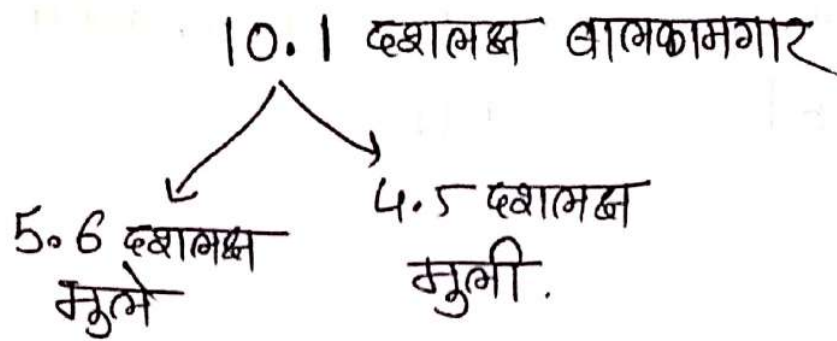 10.1 दशलक्ष बालकामगार
5.6 दशलक्ष
मुले
4.5 दशलक्ष
मुली.